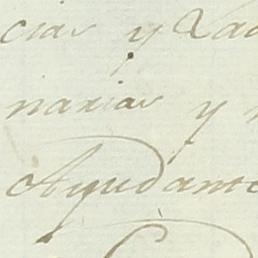 cias y Lad
narias y
Ayudante